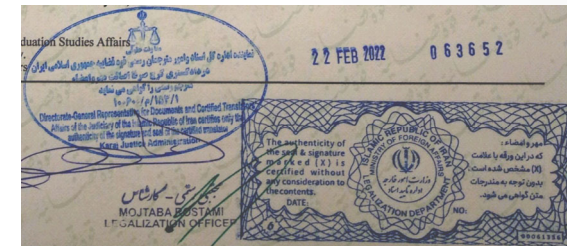 duation Studies Affairs
22 FEB 2022
063652
نماینده اداره کل اسناد و امور مترجمان رسمی قوه قضائیه جمهوری اسلامی ایران
Directorate-General Representative for Documents and Certified Translators
Affairs of the Judiciary of the Islamic Republic of Iran certifies only the
authenticity of the signature and seal of the certified translator
Karaj Justice Administration
The authenticity of
the seal & signature
marked (X) is
certified without
any consideration to
the contents.
DATE:
ISLAMIC REPUBLIC OF IRAN
MINISTRY OF FOREIGN AFFAIRS
وزارت امور خارجه
LEGALIZATION DEPARTMENT
NO:
مهر و امضاء :
که در این ورقه با علامت
(X) مشخص شده است
بدون توجه به مندرجات
متن گواهی می شود.
MOJTABA ROSTAMI
LEGALIZATION OFFICER